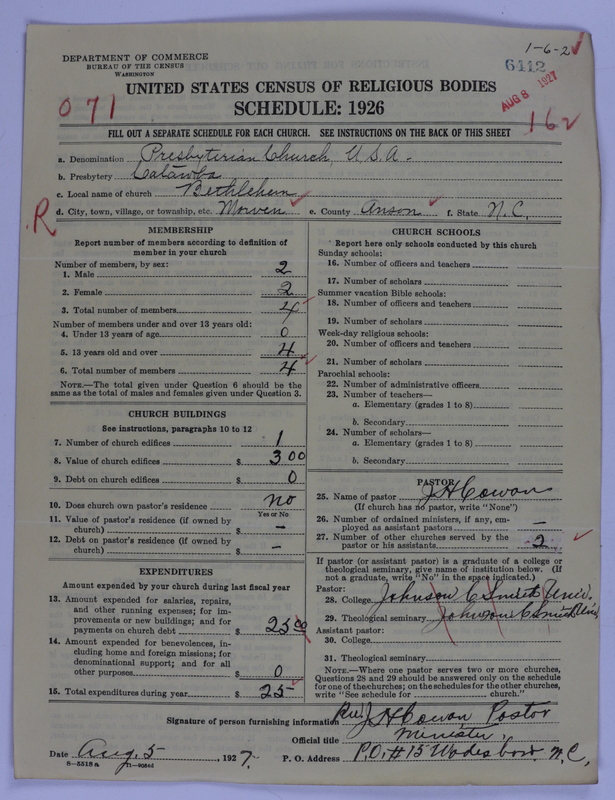 1-6-2
DEPARTMENT OF COMMERCE
BUREAU OF THE CENSUS
WASHINGTON
6412
AUG 8 1927
UNITED STATES CENSUS OF RELIGIOUS BODIES
071
SCHEDULE: 1926
162
FILL OUT A SEPARATE SCHEDULE FOR EACH CHURCH. SEE INSTRUCTIONS ON THE BACK OF THIS SHEET
a. Denomination Presbyterian Church, U.S.A.
b. Presbytery Catawba
c. Local name of church Bethlehem
R
d. City, town, village, or township, etc. Morven e. County Anson f. State N.C.
MEMBERSHIP
Report number of members according to definition of
member in your church
Number of members, by sex:
1. Male 2
2. Female 2
3. Total number of members 4
Number of members under and over 13 years old:
4. Under 13 years of age 0
5. 13 years old and over 4
6. Total number of members 4
NOTE.—The total given under Question 6 should be
same as the total of males and females given under Question 3.
CHURCH BUILDINGS
See instructions, paragraphs 10 to 12
7. Number of church edifices 1
8. Value of church edifices $ 300
9. Debt on church edifices $ 0
10. Does church own pastor's residence no
Yes or No
11. Value of pastor's residence (if owned by
church) $ —
12. Debt on pastor's residence (if owned by
church) $ —
EXPENDITURES
Amount expended by your church during last fiscal year
13. Amount expended for salaries, repairs,
and other running expenses; for im-
provements or new buildings; and for
payments on church debt $ 25 00
14. Amount expended for benevolences, in-
cluding home and foreign missions; for
denominational support; and for all
other purposes $ 0
15. Total expenditures during year $ 25
CHURCH SCHOOLS
Report here only schools conducted by this church
Sunday schools:
16. Number of officers and teachers
17. Number of scholars
Summer vacation Bible schools:
18. Number of officers and teachers
19. Number of scholars
Week-day religious schools:
20. Number of officers and teachers
21. Number of scholars
Parochial schools:
22. Number of administrative officers
23. Number of teachers—
a. Elementary (grades 1 to 8)
b. Secondary
24. Number of scholars—
a. Elementary (grades 1 to 8)
b. Secondary
PASTOR
25. Name of pastor J H Cowan
(If church has no pastor, write "None")
26. Number of ordained ministers, if any, em-
ployed as assistant pastors —
27. Number of other churches served by the
pastor or his assistants 2
If pastor (or assistant pastor) is a graduate of a college or
theological seminary, give name of institution below. (If
not a graduate, write "No" in the space indicated.)
Pastor:
28. College Johnson C Smith Univ.
29. Theological seminary Johnson C Smith Univ
Assistant pastor:
30. College
31. Theological seminary
NOTE.—Where one pastor serves two or more churches,
Questions 28 and 29 should be answered only on the schedule
for one of the churches; on the schedules for the other churches,
write "See schedule for church."
Signature of person furnishing information Rev. J H Cowan Pastor
Official title Minister,
Date Aug. 5, 1927. P. O. Address P.O. # 15 Wadesboro. N.C.